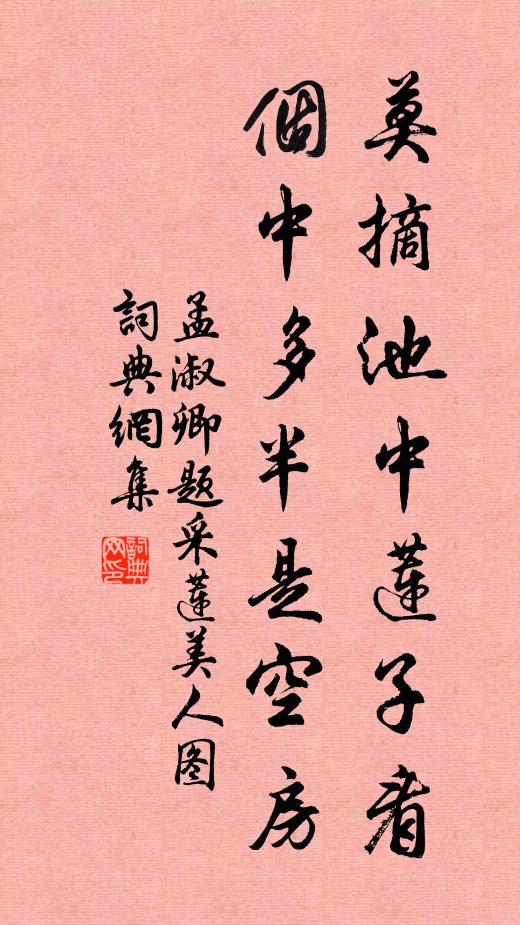 莫摘池中莲子看
個中多半是空房
孟淑卿題采莲美人图
詞典網集
詞典网印